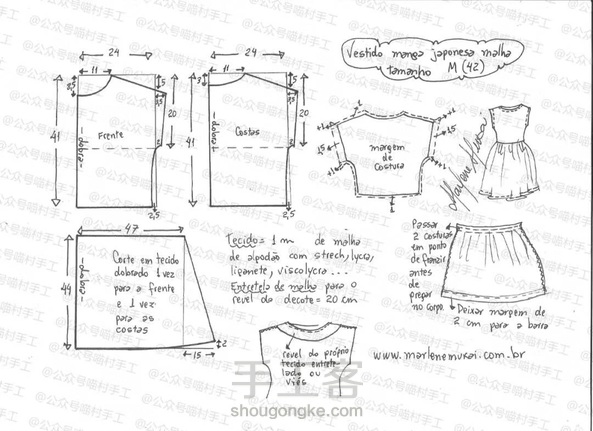 Vestido manga japonesa malha
tamanho M (42)
24
11
5
3,5
3,5
41
20
Frente
dobra
2
2,5
24
11
2
5
3,5
41
20
Costas
dobra
2
2,5
1
1
+1
+1
1,5
1,5
+1
+1
1
margem
de
costura
Marlene Mukai
47
44
dobra
Corte em tecido
dobrado 1 vez
para a frente
e 1 vez
para as
costas
2
15
Tecido = 1 m de malha
de algodão com strech, lycra,
liganete, viscolycra...
Entretela de malha para o
revel do decote = 20 cm
revel do próprio
tecido entrete-
lado ou
viés
Passar
2 costuras
em ponto
de franzir
antes
de
pregar
no corpo.
Deixar margem de
2 cm para a barra
www.marlenemukai.com.br
手工客
shougongke.com
@公众号喵村手工